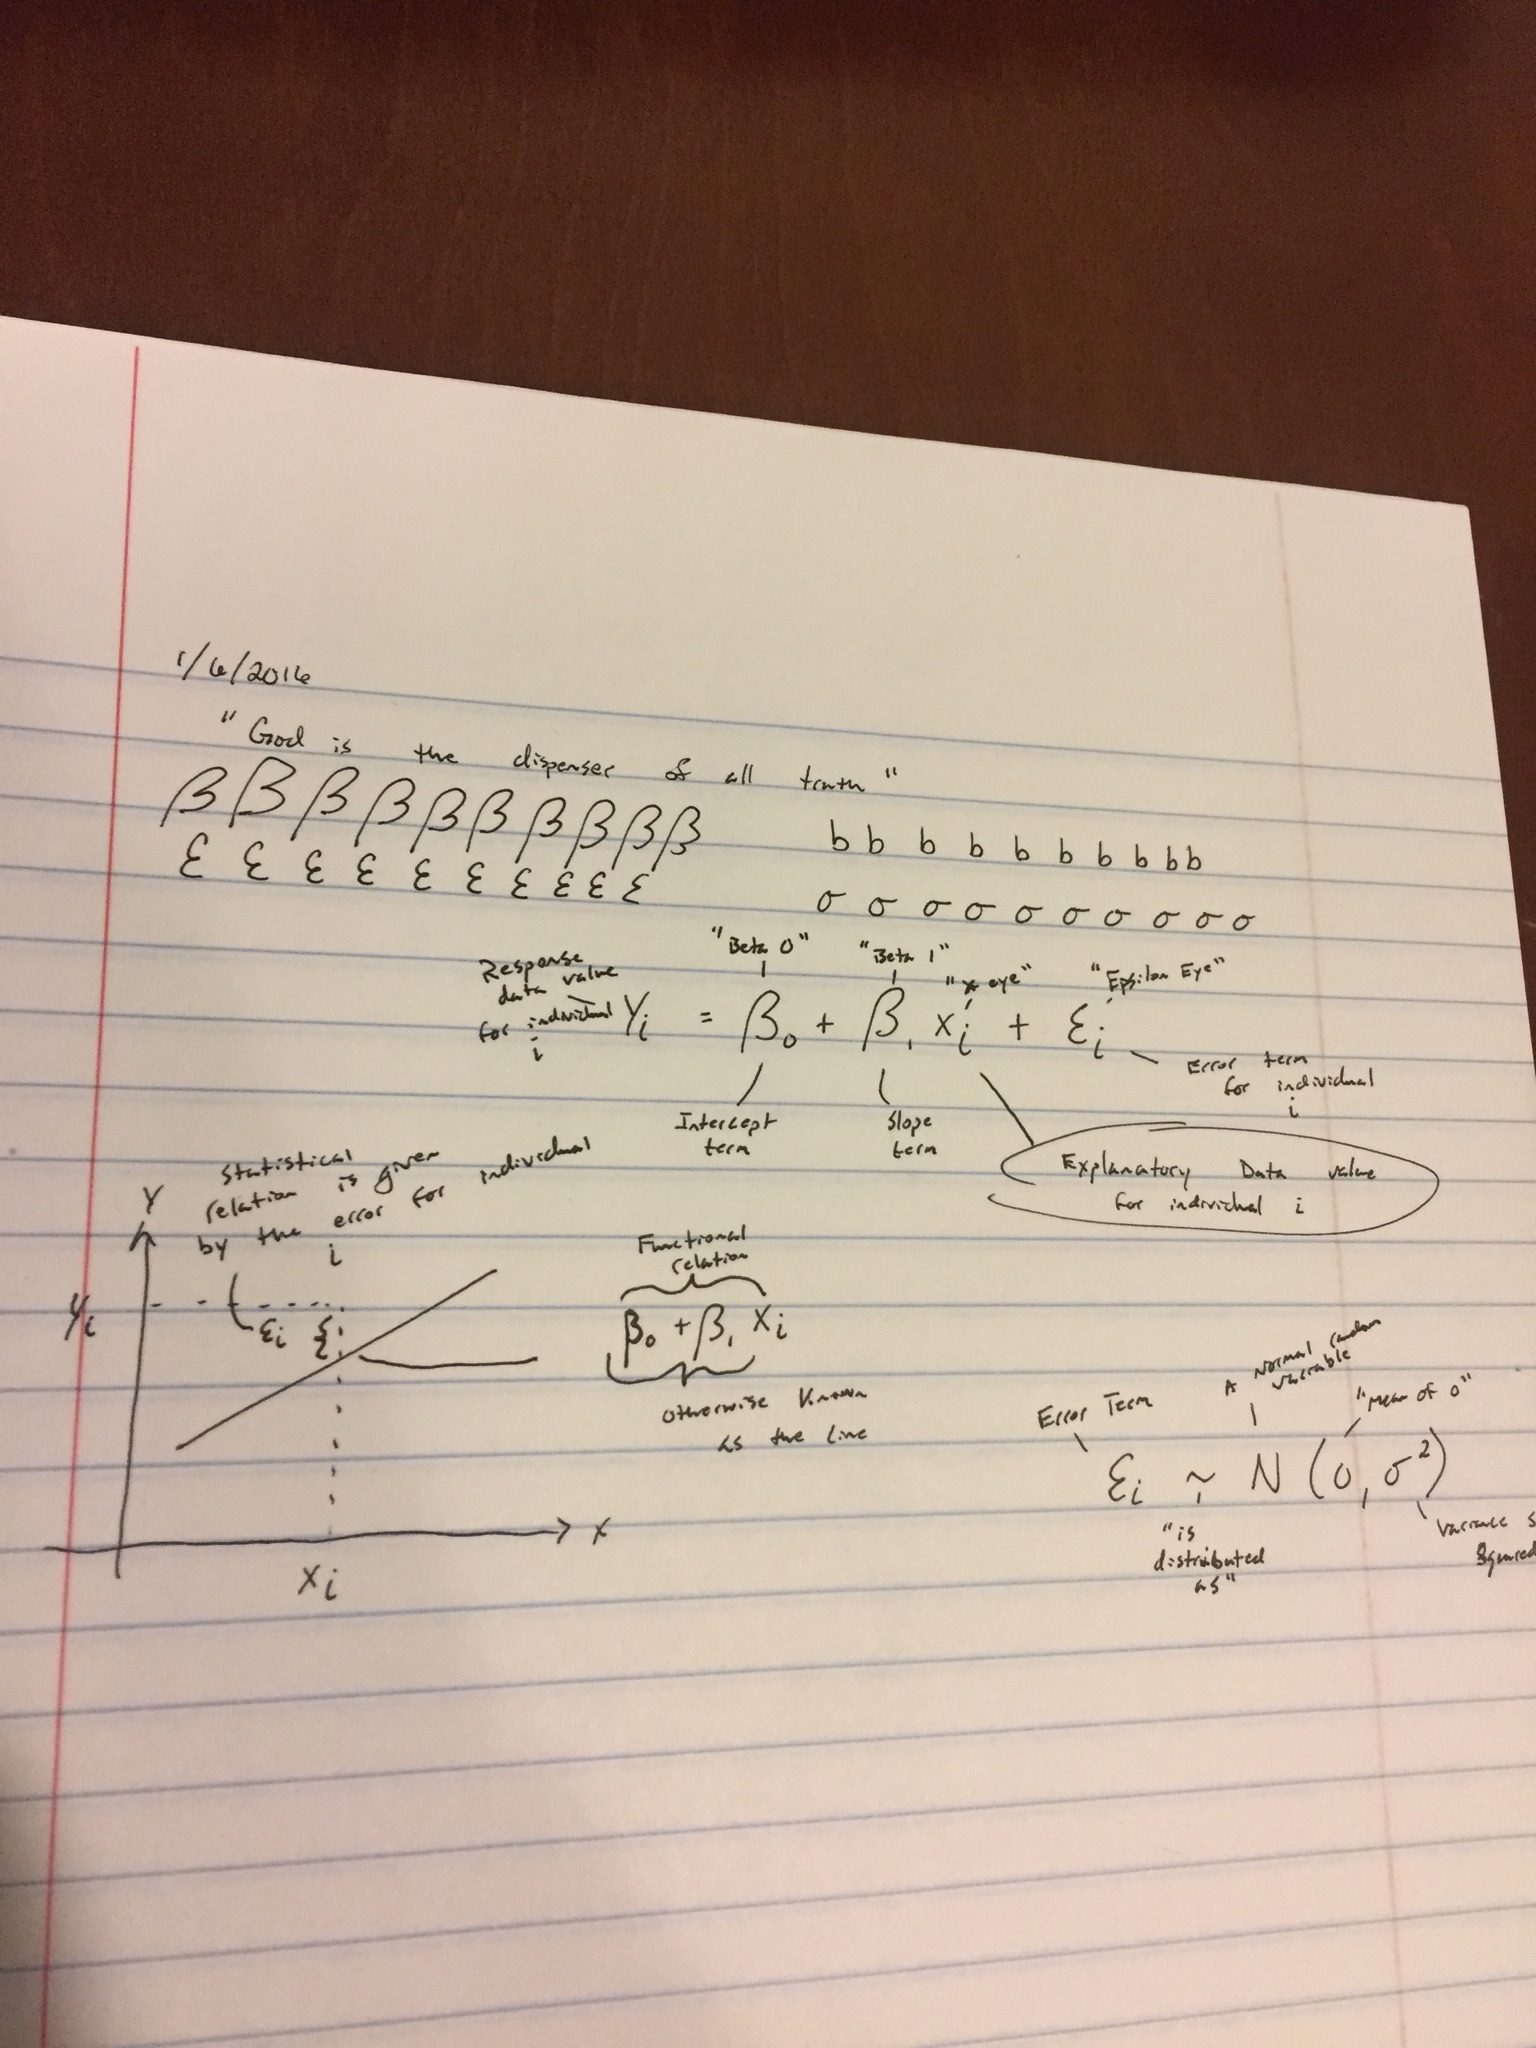 1/6/2016
"God is the dispenser of all truth"
β β β β β β β β β β
b b b b b b b b b b
ε ε ε ε ε ε ε ε ε ε
σ σ σ σ σ σ σ σ σ σ
"Beta 0"
"Beta 1"
"x eye"
"Epsilon Eye"
Response
data value
for individual
i
Yi = β0 + β1 xi + εi
Error term
for individual
i
Intercept
term
Slope
term
Explanatory Data value
for individual i
Statistical
relation is given
by the error for individual
i
Y
Yi
εi
x
xi
Functional
relation
β0 + β1 xi
otherwise known
as the line
Error Term
A Normal random
variable
"Mean of 0"
εi ~ N (0, σ²)
"is
distributed
as"
Variance
squared